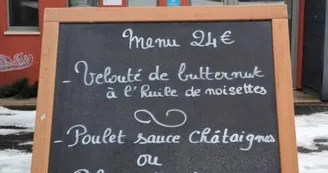 Menu 24€
- Velouté de butternut
à l'huile de noisettes
- Poulet sauce Châtaignes
ou